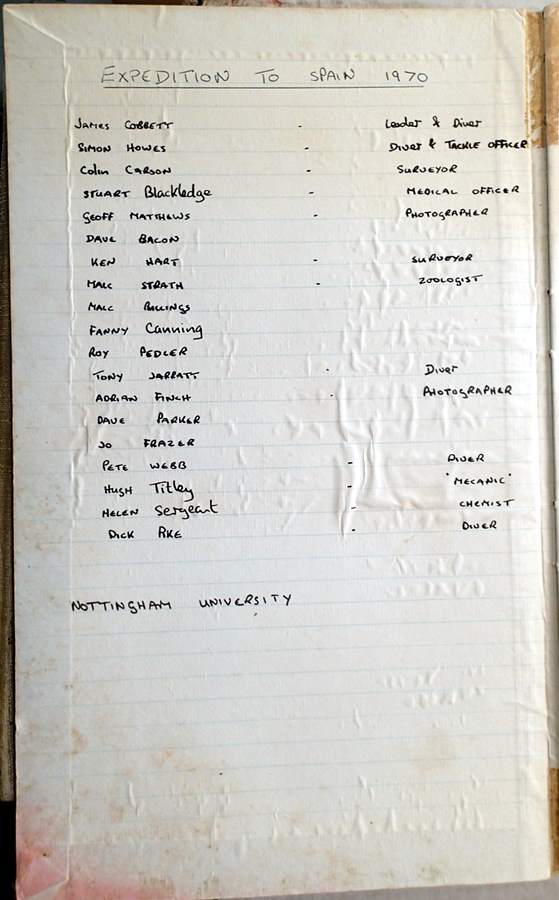 EXPEDITION TO SPAIN 1970
JAMES COBBETT - Leader & Diver
SIMON HOWES - DIVER & TACKLE OFFICER
Colin CARSON - SURVEYOR
STUART Blackledge - MEDICAL OFFICER
GEOFF MATTHEWS - PHOTOGRAPHER
DAVE BACON
KEN HART - SURVEYOR
MALC STRATH - ZOOLOGIST
MALC BILLINGS
FANNY Canning
ROY PEDLER
TONY JARRATT - Diver
ADRIAN FINCH - PHOTOGRAPHER
DAVE PARKER
JO FRAZER
PETE WEBB - DIVER
HUGH Titley - 'MECANIC'
HELEN Sergeant - CHEMIST
DICK - DIVER
NOTTINGHAM UNIVERSITY